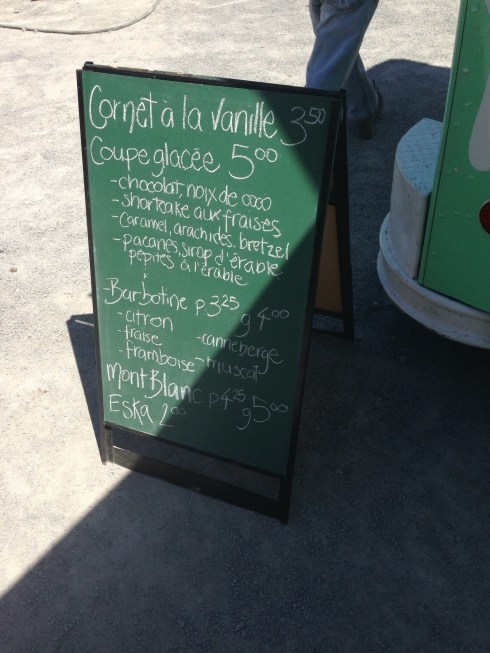 Cornet à la vanille 3.50
Coupe glacée 5.00
-chocolat, noix de coco
-shortcake aux fraises
-caramel, arachides, bretzel
-pacanes, sirop d'érable
pépites à l'érable
-Barbotine p 3.25
g 4.00
-citron
-fraise -canneberge
-framboise -muscat
Mont Blanc p 4.25
g 5.00
ESKA 2.00